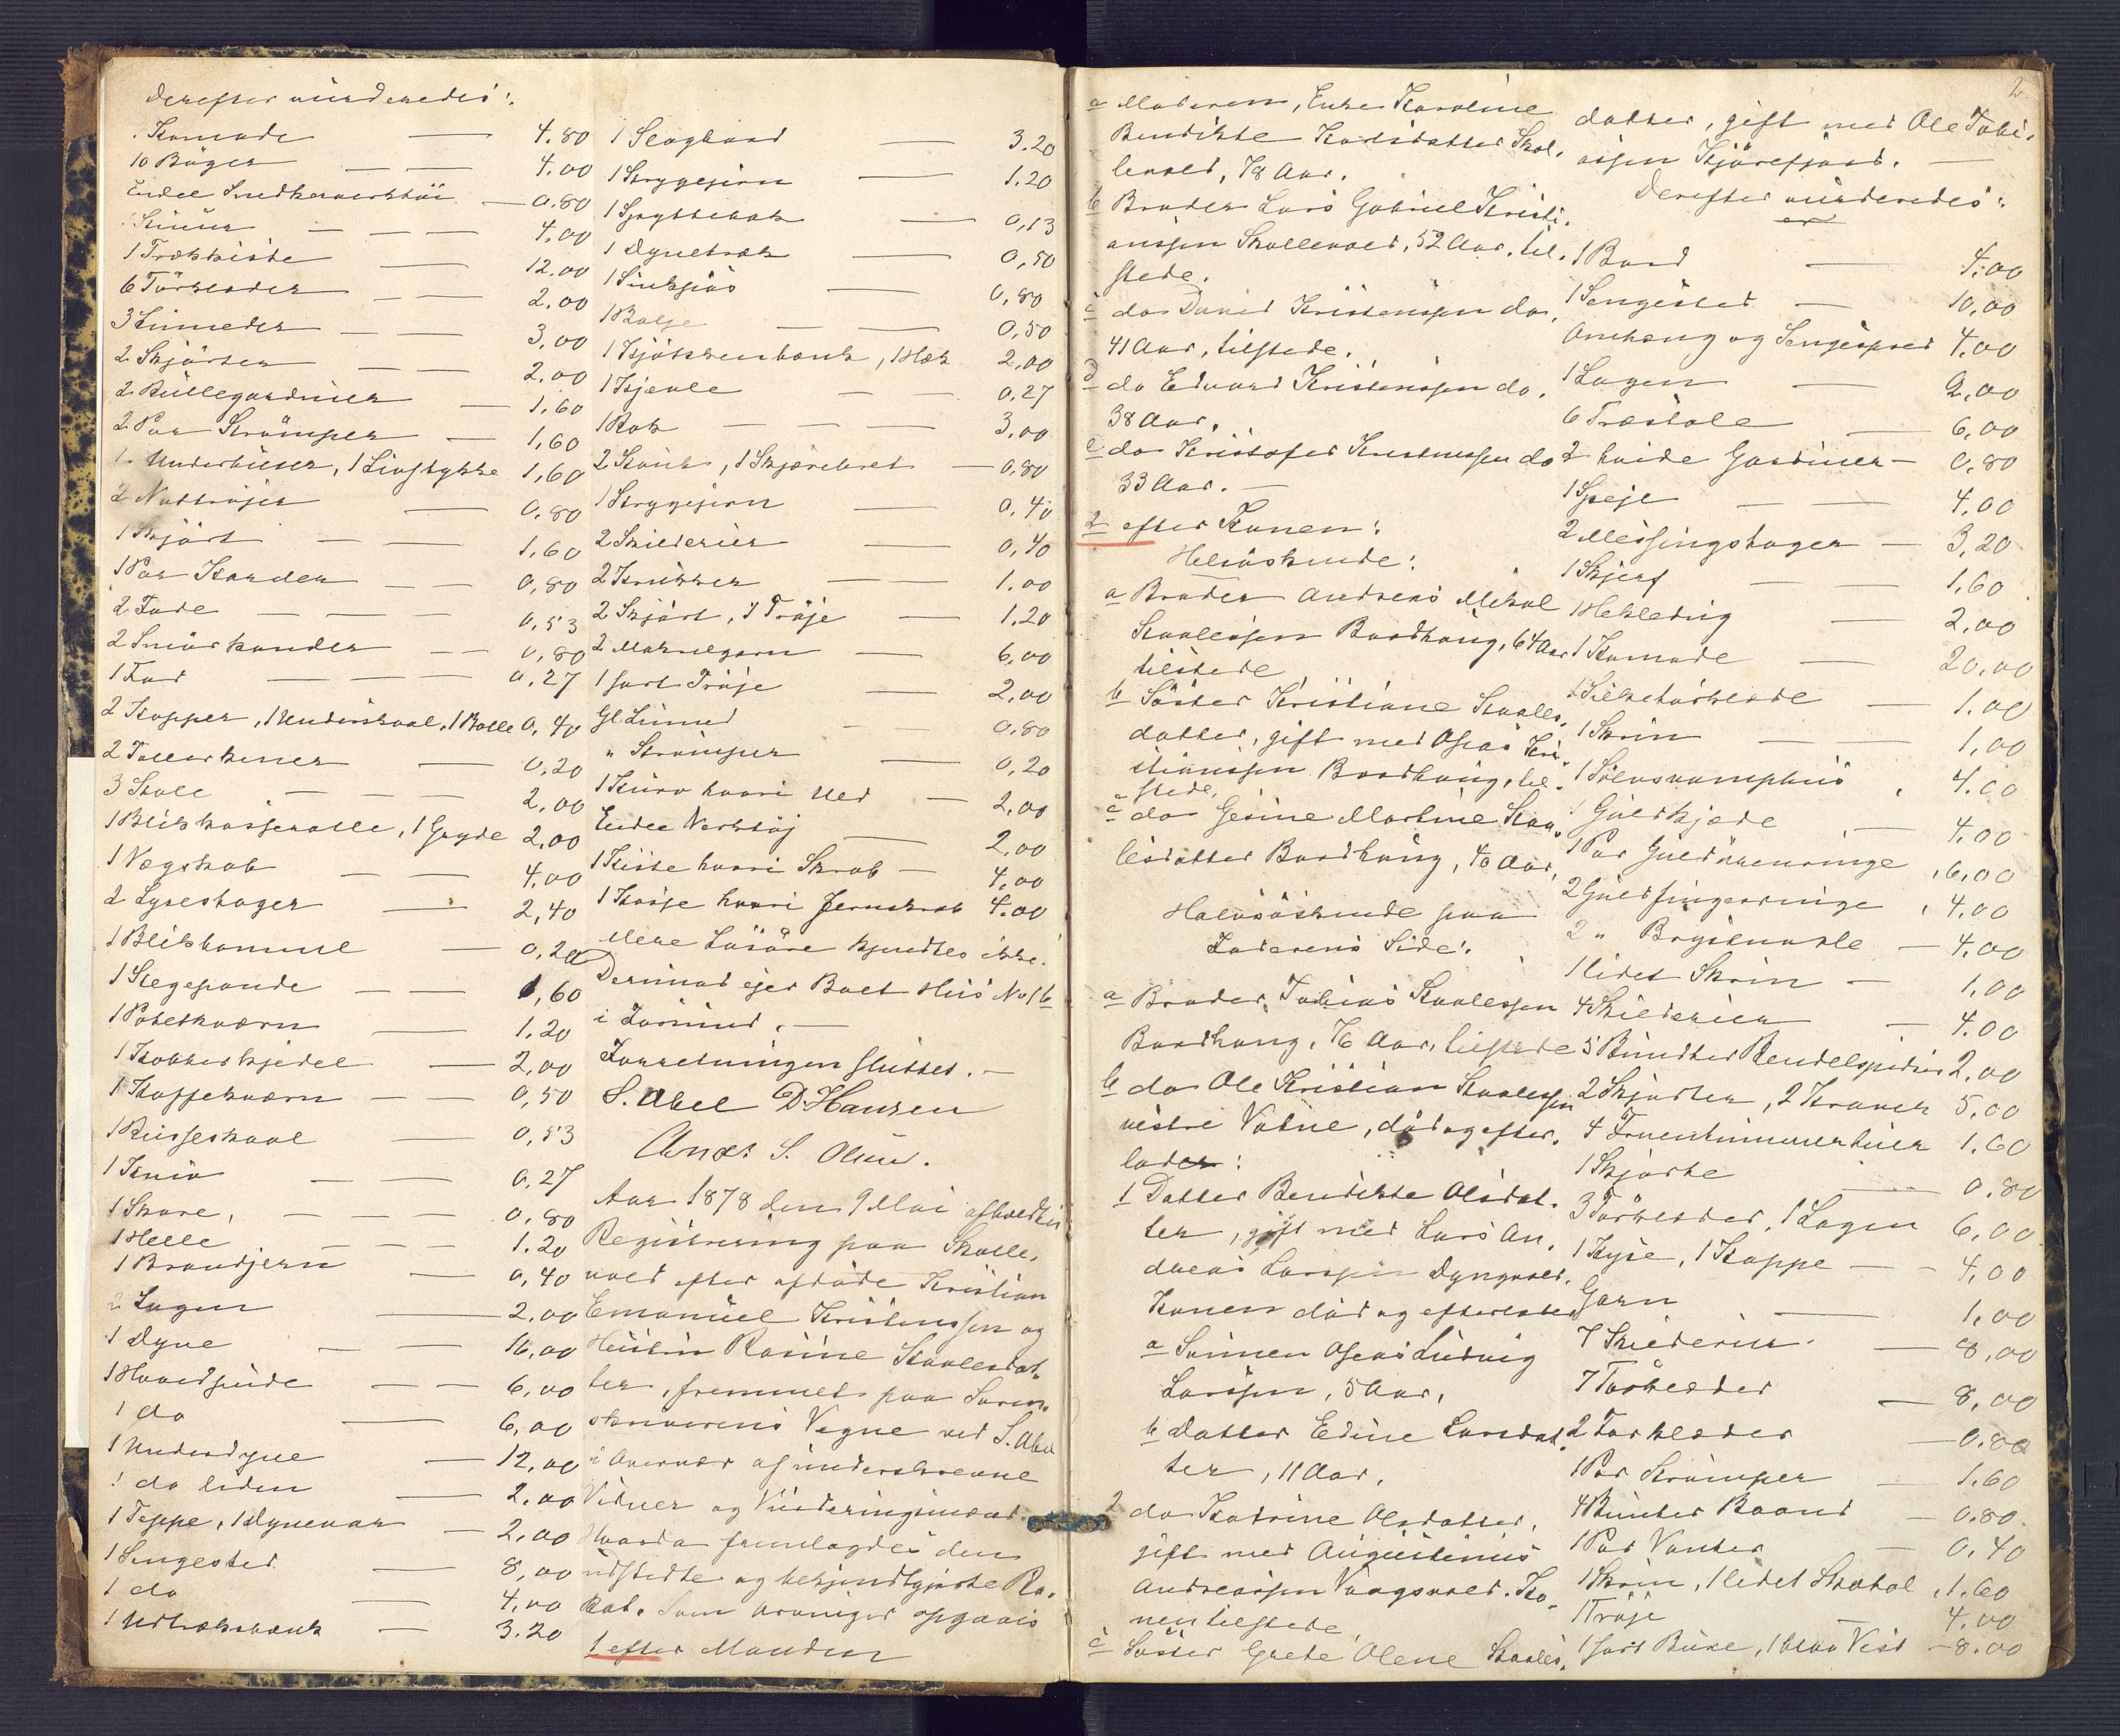 Derefter vurderedes:
1 Komode — 4.80
10 Bøger — 4,00
Endel Snedkerverktøi — 0.80
4,00
1 Trækkiste — 12.00
6 Tørklæder — 2.00
3 — 3,00
2 Skjorter — 2,00
2 Rullegardiner — 1,60
2 Par Strømper — 1,60
1 Underbuxer, 1 Livstykke 1,60
2 Nattrøjer — 0.80
1 Skjørt — 1,60
1 Par Karder — 0,80
2 Fade — 0,53
2 Smørkander — 0,80
1 Fad — 0.27
2 Kopper, 1 Underskaal, 1 Bolle 0,40
2 Tallerkener — 0,20
3 Stole — 2,00
1 Blikkasserolle, 1 Gryde 2,00
1 Vægskab — 4,00
2 Lysestager — 2,40
1 Blikkomme — 0,20
1 Stegepande — 1,60
1 Potetkværn — 1,20
1 Kobberkjedel — 2,00
1 Kaffekværn — 0,50
1 — 0,53
1 Kniv — 0,27
1 — 0,80
1 Helle — 1.20
1 Brandjern — 0,40
2 Lagen — 2,00
1 Dyne — 16,00
1 Hovedpude — 6,00
1 do — 6,00
1 Underdyne — 12,00
1 do liden — 2,00
1 Teppe, 1 Dynevar — 2,00
1 Sengested — 8,00
1 do — 4,00
1 Udtræksbænk — 3.20
1 Slagbord — 3.20
1 Strygejern — 1.20
1 — 0,13
1 Dynetræk — 0,50
1 — 0,80
1 Balje — 0,50
1 Kjøkkenbænk, 1 Hæk 2,00
1 Kjevle — 0,27
1 Rok — 3,00
2 , 1 Skjærebræt — 0,80
1 Strygejern — 0,40
2 Skilderier — 0,40
2 Krukker — 1.00
2 Skjørt, 1 Trøje — 1.20
2 — 6,00
1 sort Trøje — 2,00
Gl. Linned — 0,80
" Strømper — 0,20
1 Kurv hvori Uld — 2,00
Endel Verktøj — 2,00
1 Kiste hvori Skrab — 4,00
1 Kasse hvori Jernskrab 4.00
Mere Løsøre kjendtes ikke.
Derimod ejer Boet Hus No 16
i Farsund. —
Forretningen sluttet. —
S. Abel D. Hansen
Andr. S. Olsen.
Aar 1878 den 9 Mai afholdtes
Registrering paa Skolle-
vold efter afdøde Kristian
Emanuel Kristensen og
Hustru Rasine Staalesdat-
ter, fremmet paa Soren-
skriverens Vegne ved S. Abel
i Overvær af underskrevne
Vidner og Vurderingsmænd.
Hvorda fremlagdes den
udstedte og bekjendtgjorte Pro-
kat. Som arvinger opgaves
1 efter Manden
2
a Moderen, Enke Karoline
Bendikte Karlsdatter Skol-
levold, 78 Aar.
b Broder Lars Gabriel Kristi-
anssen Skollevold, 52 Aar, til-
stede.
c do Daniel Kristenssen do,
41 Aar, tilstede.
d do Edvard Kristenssen do,
38 Aar.
e do Kristofer Kristenssen do
33 Aar. —
2 efter Konen:
Helsøskende:
a Broder Andreas Mikal
Staalessen Bordhaug, 64 Aar
tilstede
b Søster Kristiane Staales-
datter, gift med Oseas Kri-
stianssen Bordhaug, til-
stede.
c do Gesine Martine Staa-
lesdatter Bordhaug, 40 Aar,
Halvsøskende paa
Faderens Side:
a Broder Tobias Staalessen
Bordhaug, 76 Aar, tilstede
b do Ole Kristian Staalessen
vestre Vatne, død og efter-
lader:
1 Datter Bendikte Olsdat-
ter, gift med Lars An-
dreas Larssen Dyngvold.
Konen død og efterlader
a Sønnen Oseas Ludvig
Larssen, 5 Aar,
b Datter Edine Larsdat-
ter, 11 Aar.
2 do Katrine Olsdatter,
gift med Augustinus
Andreassen Vaagsvold. Ko-
nen tilstede
c Søster Grete Olene Staales-
datter, gift med Ole Tobi-
assen Kjørefjord. —
Derefter vurderedes:
1 Bord — 4.00
1 Sengested — 10,00
Omhæng og Sengespred 4,00
1 Lagen — 2,00
6 Træstole — 6,00
2 hvide Gardiner — 0,80
1 Spejl — 4,00
2 Messingstager — 3,20
1 Skjerf — 1,60
1 — 2,00
1 Komode — 20,00
1 Silketørklæde — 1.00
1 Skrin — 1,00
1 Sølvsvamphus , 4.00
1 Guldkjæde , — 4,00
1 Par Guldørenringe , 6,00
2 Guldfingerringe , 4,00
2 " Brystnaale — 4,00
1 lidet Skrin — 1,00
4 Skilderier — 4.00
5 Bundter 2,00
2 Skjorter, 2 Kraver 5,00
4 1.60
1 Skjorte — 0.80
3 Tørklæder, 1 Lagen 6,00
1 Kyse, 1 Kappe — 4,00
Garn — 1,00
7 Skilderier — 8,00
7 Tørklæder — 8,00
2 Forklæder — 0.80
1 Par Strømper — 1.60
4 Bundter Baand — 0.80
1 Par Vanter — 0,40
1 Skrin, 1 lidet , 1.60
1 Trøje — 4.00
1 sort Buxe, 1 blaa Vest — 8.00